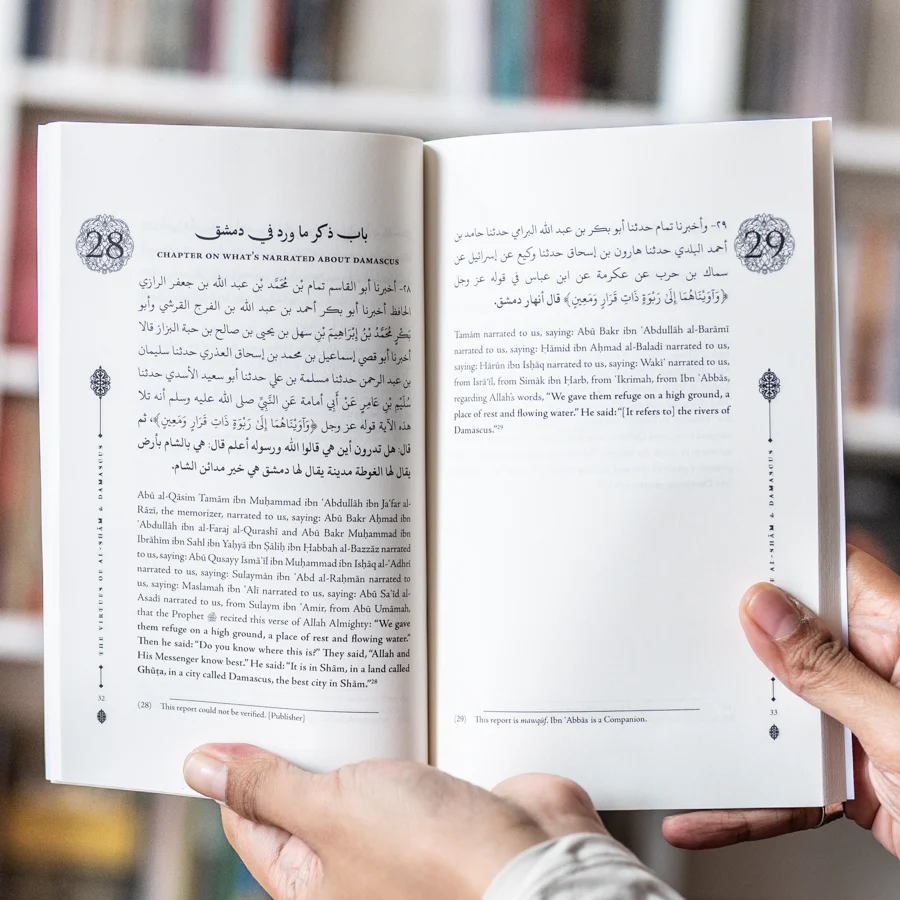 28
باب ذكر ما ورد في دمشق
CHAPTER ON WHAT'S NARRATED ABOUT DAMASCUS
٢٨- أخبرنا أبو القاسم تمام بْن مُحَمَّد بْن عبد الله بن جعفر الرازي
الحافظ أخبرنا أبو بكر أحمد بن عبد الله بن الفرج القرشي وأبو
بَكر مُحَمَّدُ بْنُ إِبْرَاهِيمَ بْنِ سهل بن يحيى بن صالح بن حبة البزاز قالا
أخبرنا أبو قصي إسماعيل بن محمد بن إسحاق العذري حدثنا سليمان
بن عبد الرحمن حدثنا مسلمة بن علي حدثنا أبو سعيد الأسدي حدثنا
سُلَيْمِ بْنِ عَامِرٍ عَنْ أَبِي أمامة عَنِ النَّبِيِّ صلى الله عليه وسلم أنه تلا
هذه الآية قوله عز وجل ﴿وَآوَيْنَاهُمَا إِلَىٰ رَبْوَةٍ ذَاتِ قَرَارٍ وَمَعِينٍ﴾، ثم
قال: هل تدرون أين هي قالوا الله ورسوله أعلم قال: هي بالشام بأرض
يقال لها الغوطة مدينة يقال لها دمشق هي خير مدائن الشام.
Abū al-Qāsim Tamām ibn Muḥammad ibn ʿAbdullāh ibn Jaʿfar al-
Rāzī, the memorizer, narrated to us, saying: Abū Bakr Aḥmad ibn
ʿAbdullāh ibn al-Faraj al-Qurashī and Abū Bakr Muḥammad ibn
Ibrāhīm ibn Sahl ibn Yaḥyā ibn Ṣāliḥ ibn Ḥabbah al-Bazzāz narrated
to us, saying: Abū Qusayy Ismāʿīl ibn Muḥammad ibn Isḥāq al-ʿAdhrī
narrated to us, saying: Sulaymān ibn ʿAbd al-Raḥmān narrated to
us, saying: Maslamah ibn ʿAlī narrated to us, saying: Abū Saʿīd al-
Asadī narrated to us, from Sulaym ibn ʿAmir, from Abū Umāmah,
that the Prophet ﷺ recited this verse of Allah Almighty: “We gave
them refuge on a high ground, a place of rest and flowing water.”
Then he said: “Do you know where this is?” They said, “Allah and
His Messenger know best.” He said: “It is in Shām, in a land called
Ghūṭa, in a city called Damascus, the best city in Shām.”²⁸
(28) This report could not be verified. [Publisher]
THE VIRTUES OF AL-SHĀM & DAMASCUS
32
29
٢٩- وأخبرنا تمام حدثنا أبو بكر بن عبد الله البرامي حدثنا حامد بن
أحمد البلدي حدثنا هارون بن إسحاق حدثنا وكيع عن إسرائيل عن
سماك بن حرب عن عكرمة عن ابن عباس في قوله عز وجل
﴿وَآوَيْنَاهُمَا إِلَىٰ رَبْوَةٍ ذَاتِ قَرَارٍ وَمَعِينٍ﴾ قال أنهار دمشق.
Tamām narrated to us, saying: Abū Bakr ibn ʿAbdullāh al-Barāmī
narrated to us, saying: Ḥāmid ibn Aḥmad al-Baladī narrated to us,
saying: Hārūn ibn Isḥāq narrated to us, saying: Wakīʿ narrated to us,
from Isrāʾīl, from Simāk ibn Ḥarb, from ʿIkrimah, from Ibn ʿAbbās,
regarding Allah's words, “We gave them refuge on a high ground, a
place of rest and flowing water.” He said: “[It refers to] the rivers of
Damascus.”²⁹
(29) This report is mawqūf. Ibn ʿAbbās is a Companion.
AL-SHĀM & DAMASCUS
33